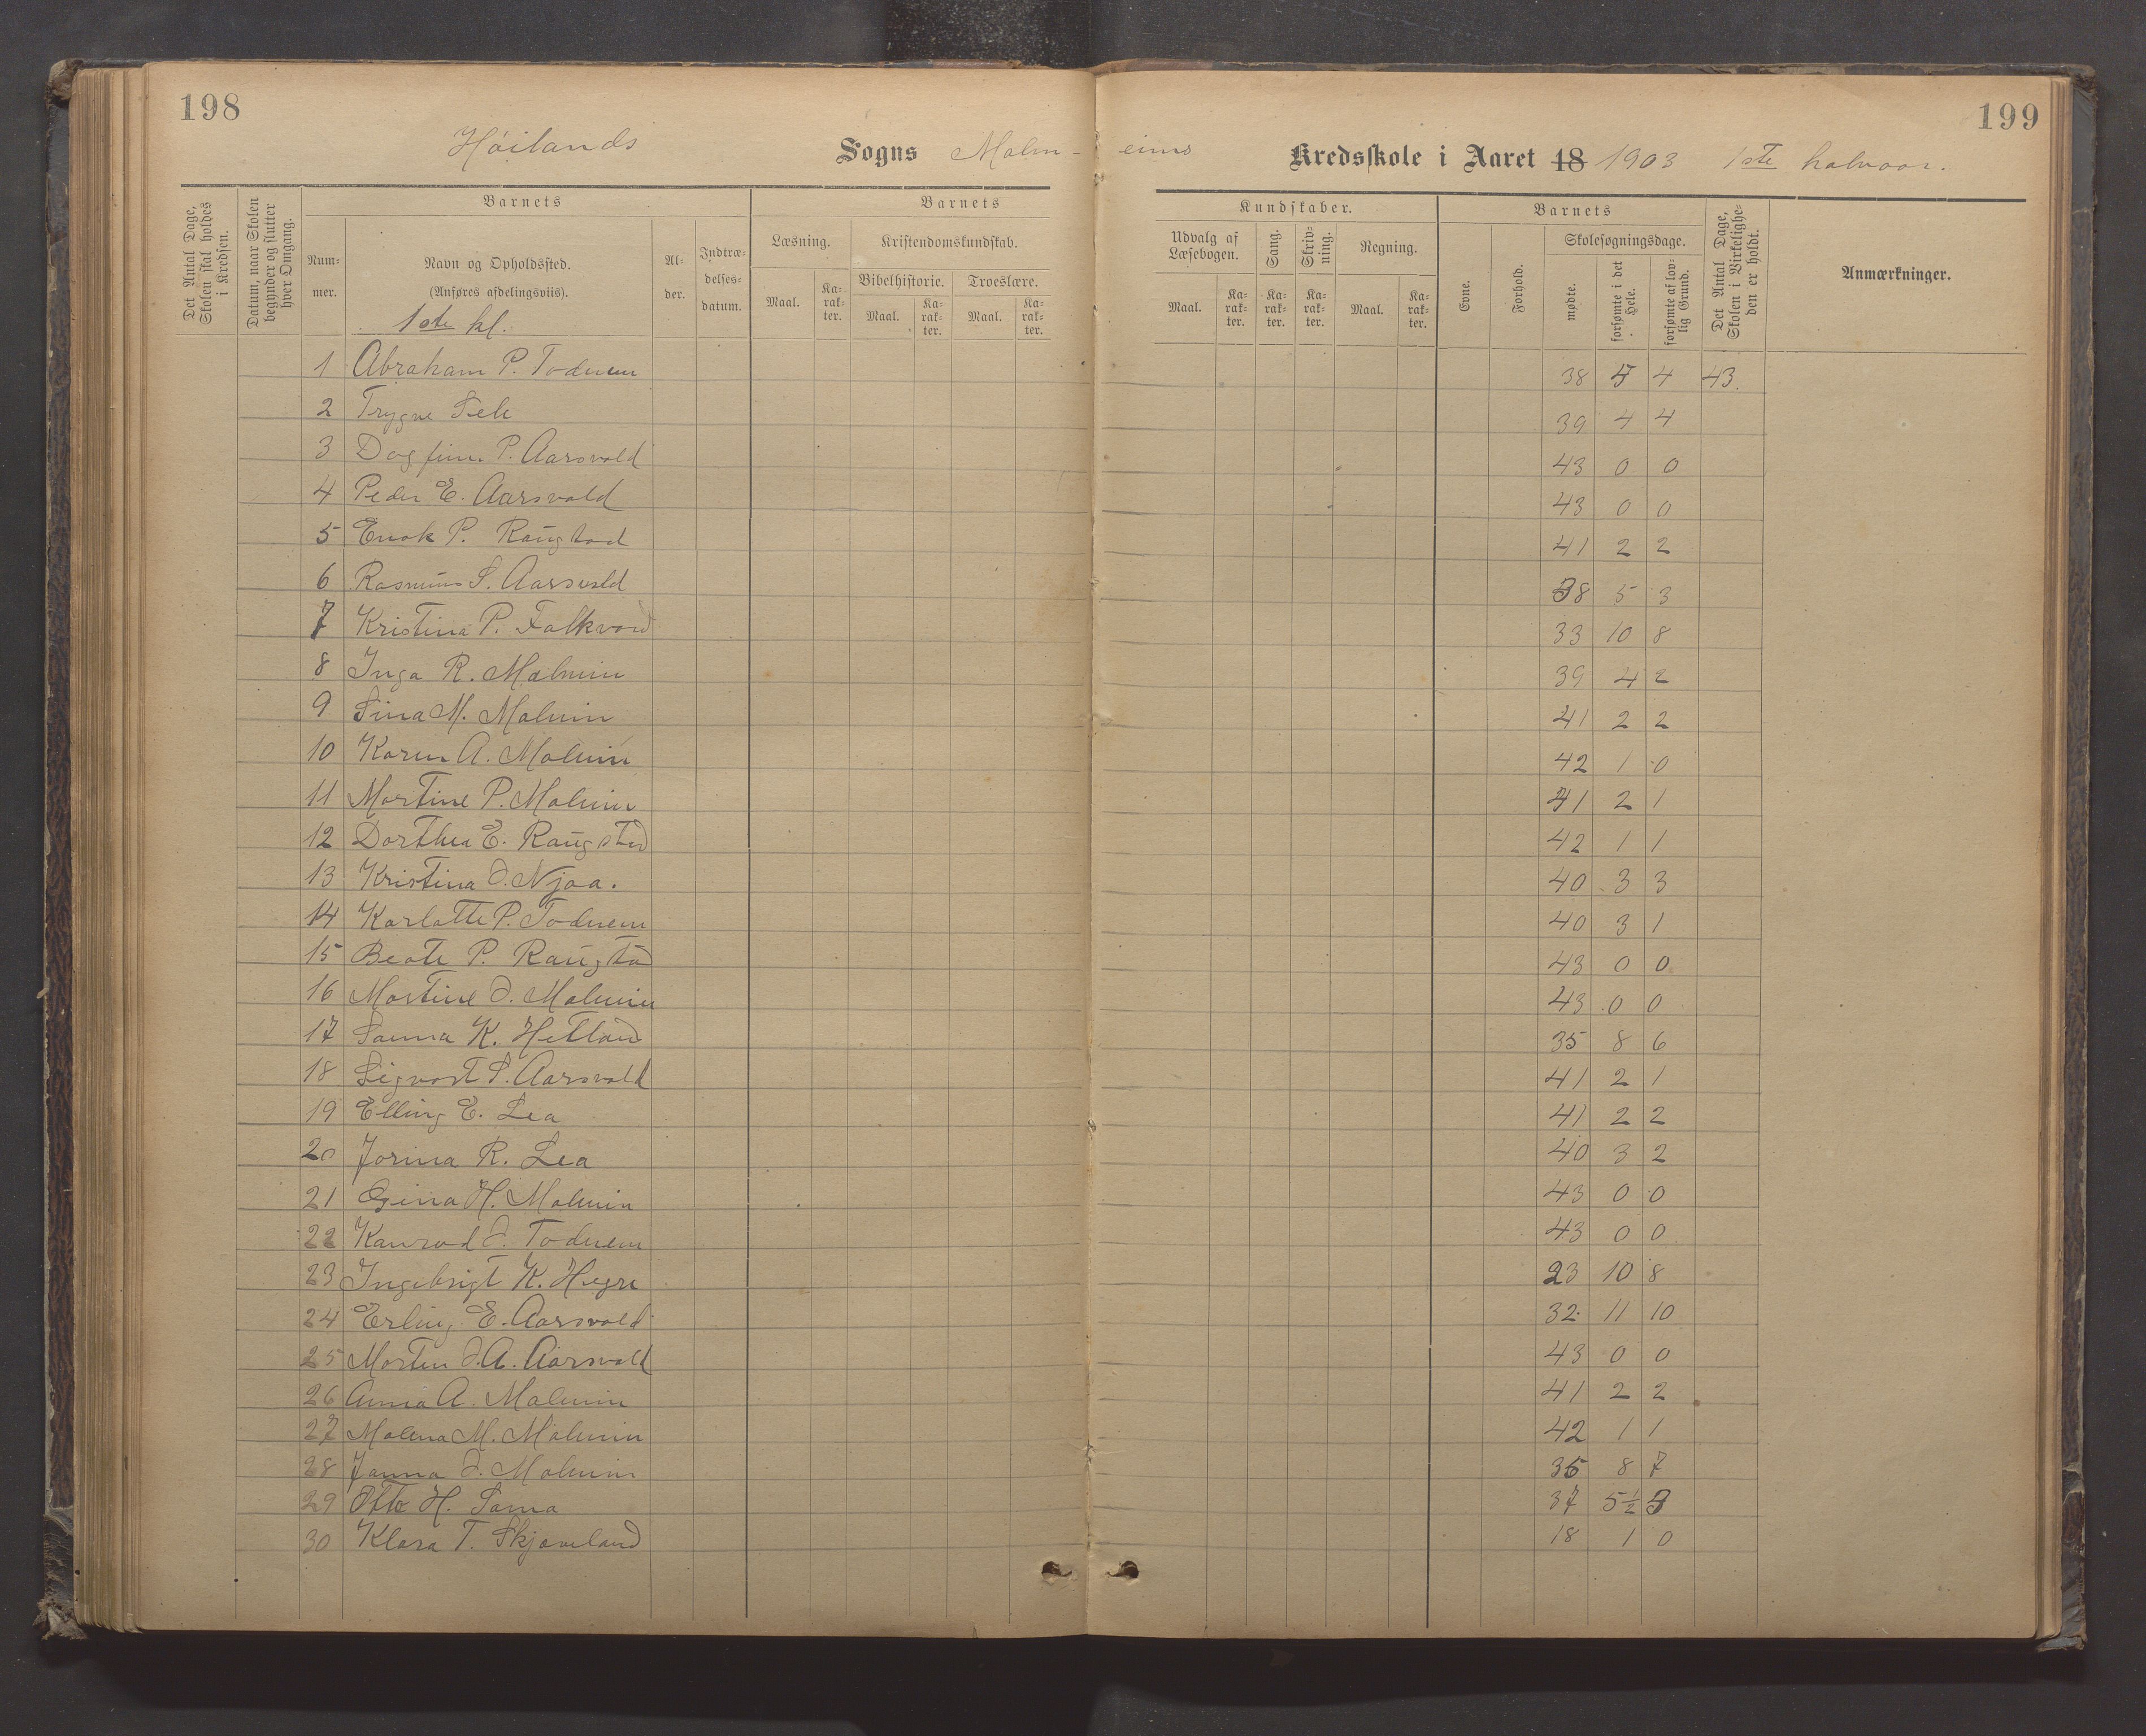 198
199
Höilands Sogns Malm- eims Kredsskole i Aaret 18 1903 1ste halvaar.
Det Antal Dage, Skolen skal holdes i Kredsen.
Datum, naar Skolen begynder og slutter hver Omgang.
Barnets
Num- mer.
Navn og Opholdssted.
(Anføres afdelingsviis).
1ste kl.
Al- der.
Indtræ- delses- datum.
Barnets
Læsning.
Maal.
Ka- rak- ter.
Kristendomskundskab.
Bibelhistorie.
Maal.
Ka- rak- ter.
Troeslære.
Maal.
Ka- rak- ter.
Kundskaber.
Udvalg af Læsebogen.
Maal.
Ka- rak- ter.
Sang.
Ka- rak- ter.
Skriv- ning.
Ka- rak- ter.
Regning.
Maal.
Ka- rak- ter.
Barnets
Evne.
Forhold.
Skolesøgningsdage.
mødte.
forsømte i det Hele.
forsømte af lov- lig Grund.
Det Antal Dage, Skolen i Virkelighe- den er holdt.
Anmærkninger.
1 Abraham P. Todnem 38 5 4 43.
2 Trygve Sele 39 4 4
3 Dagfinn P. Aarsvold 43 0 0
4 Peder E. Aarsvold 43 0 0
5 Enok P. Raugstad 41 2 2
6 Rasmus S. Aarsvold 38 5 3
7 Kristina P. Falkvard 33 10 8
8 Inga R. Malmin 39 4 2
9 Sina M. Malmin 41 2 2
10 Karen A. Malmin 42 1 0
11 Martine P. Malmin 41 2 1
12 Dorthea E. Raugstad 42 1 1
13 Kristina O. Njaa. 40 3 3
14 Karlotte P. Todnem 40 3 1
15 Beate P. Raugstad 43 0 0
16 Martine O. Malmin 43 0 0
17 Sanna K. Hetland 35 8 6
18 Sigvart S. Aarsvold 41 2 1
19 Elling E. Lea 41 2 2
20 Jorina R. Lea 40 3 2
21 Gina H. Malmin 43 0 0
22 Kanrad O. Todnem 43 0 0
23 Ingebrigt K. Hegre 23 10 8
24 Erling E. Aarsvold 32 11 10
25 Morten O.A. Aarsvold 43 0 0
26 Anna A. Malmin 41 2 2
27 Malena M. Malmin 42 1 1
28 Janna O. Malmin 35 8 7
29 Otto H. Sama 37 5½ 3
30 Klara T. Skjæveland 18 1 0